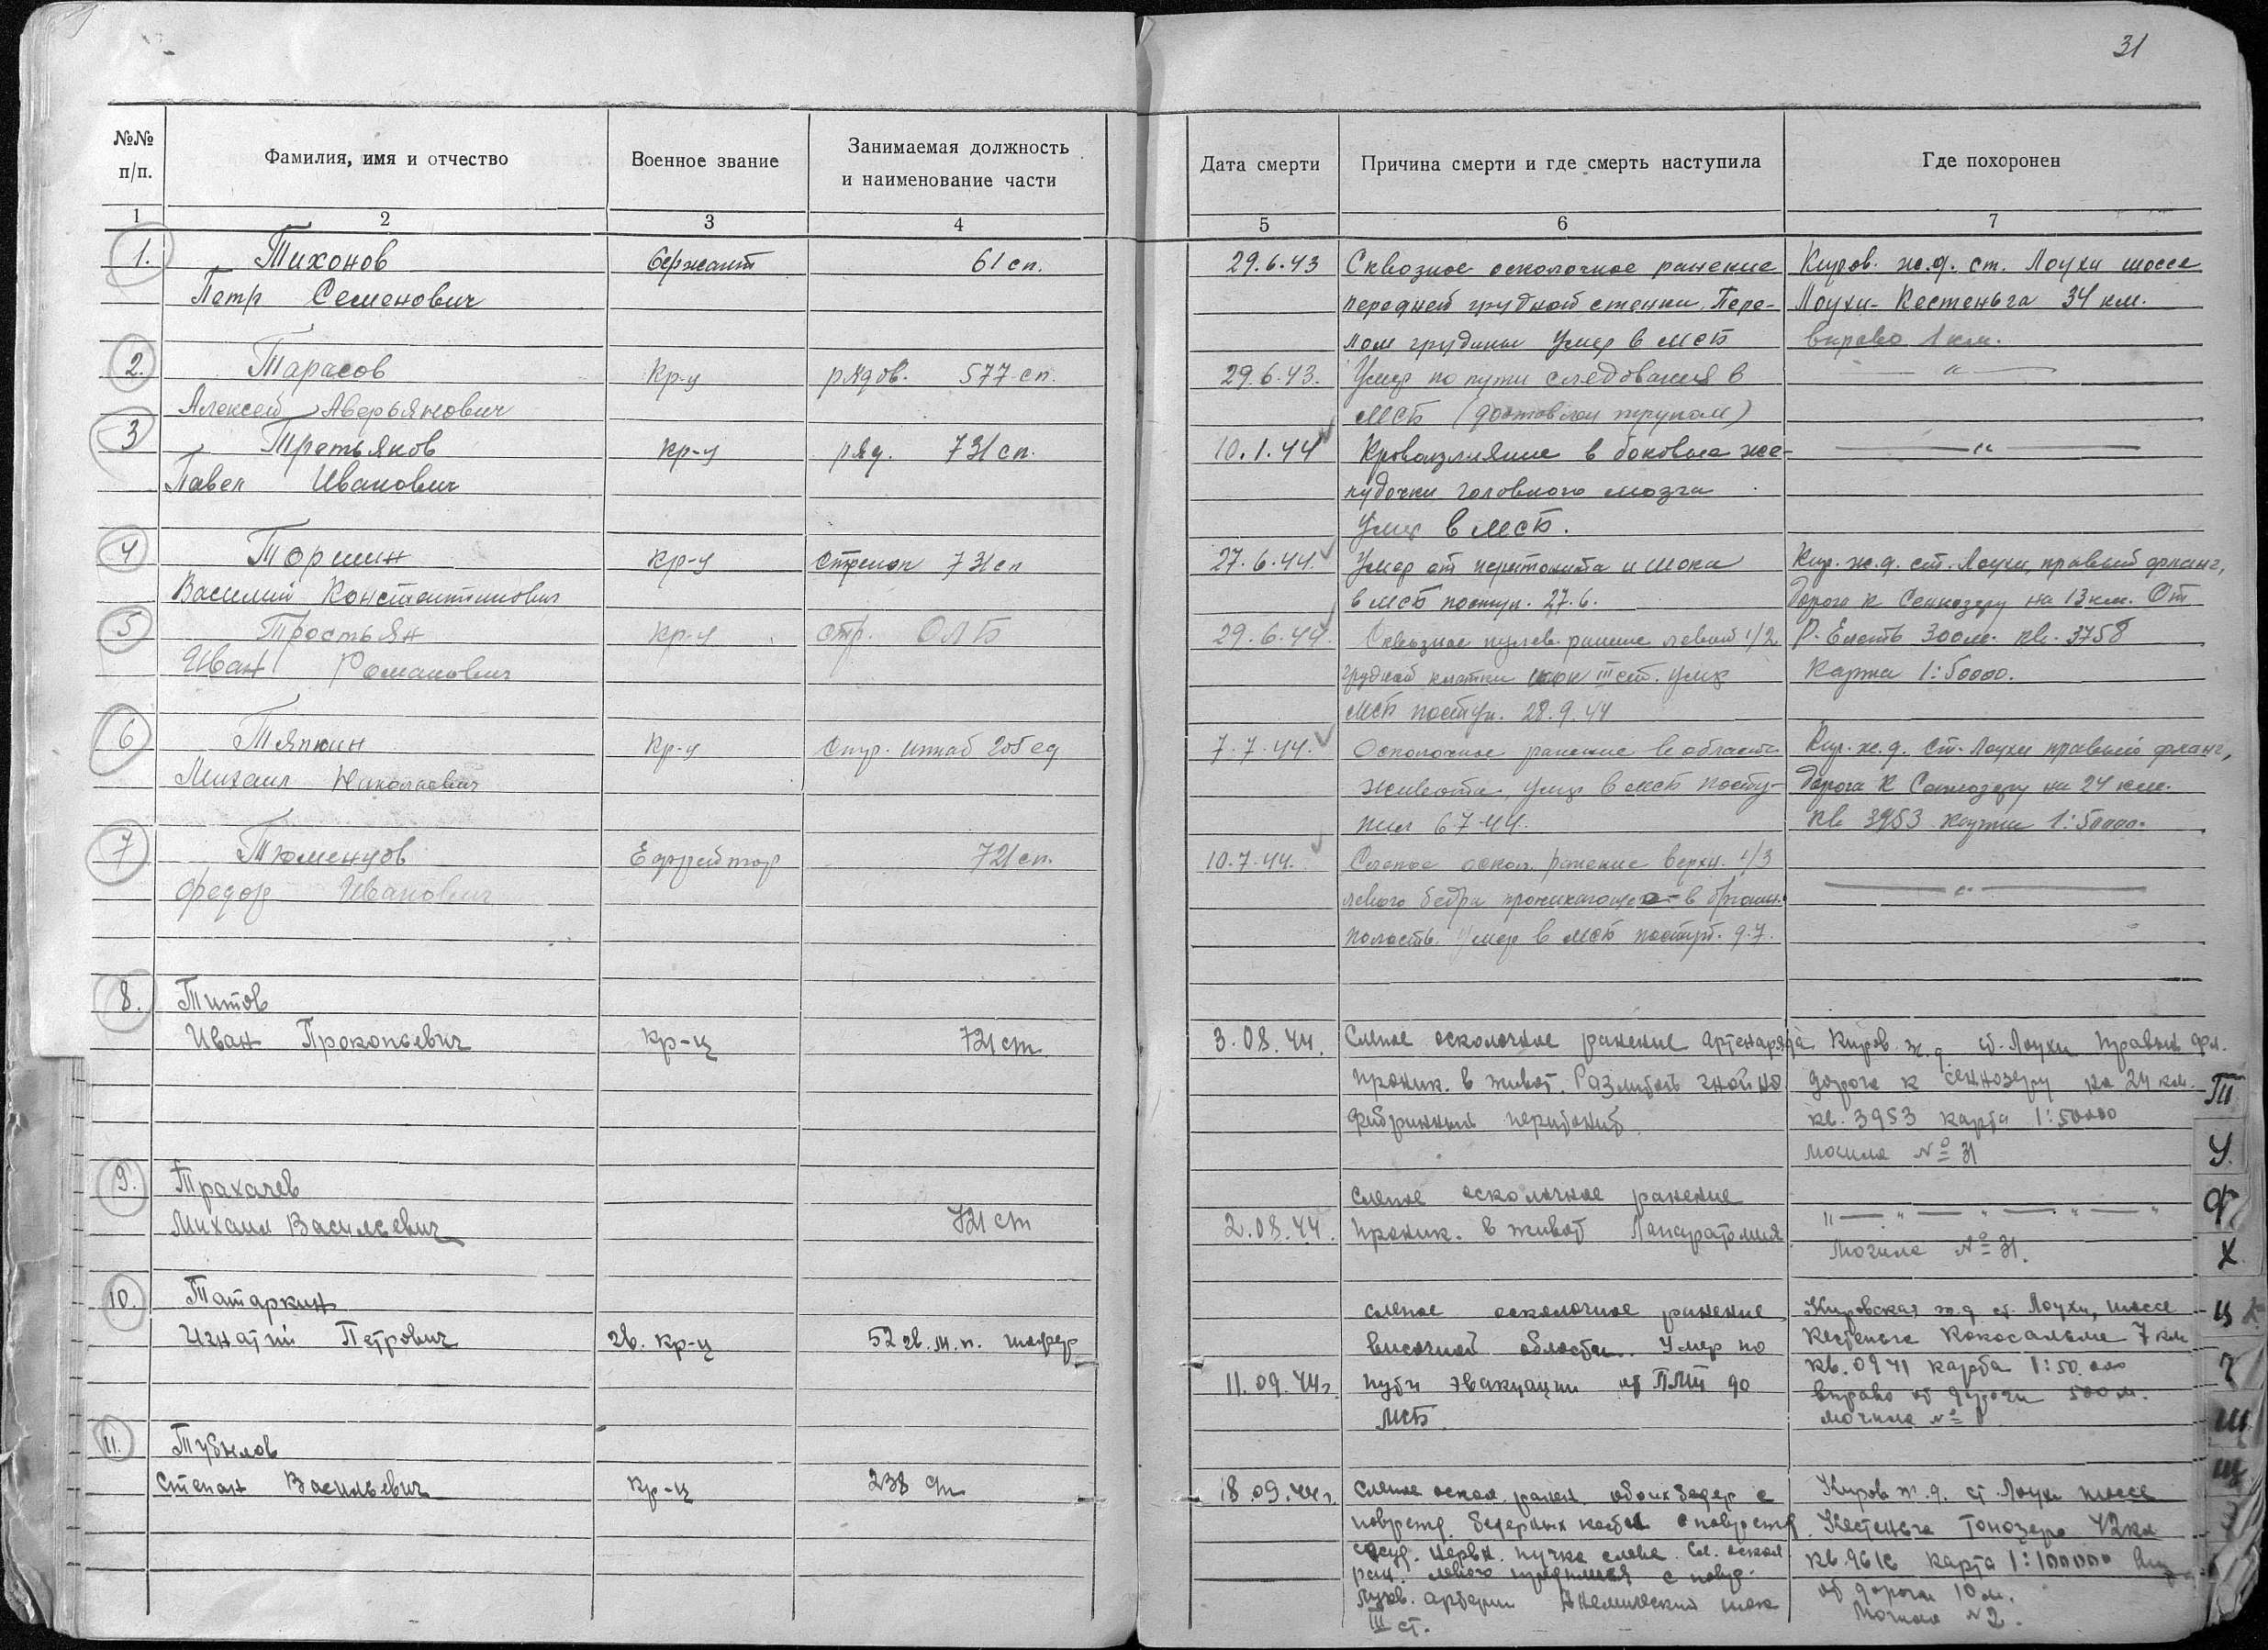 31
№№ п/п.
Фамилия, имя и отчество
Военное звание
Занимаемая должность
и наименование части
Дата смерти
Причина смерти и где смерть наступила
Где похоронен
1 2 3 4 5 6 7
1. Тихонов Сержант 61 сп. 29.6.43 Сквозное осколочное ранение Киров. ж.д. ст. Лоухи шоссе
Петр Семенович передней грудной стенки. Пере- Лоухи-Кестеньга 34 км.
лом грудины Умер в МСБ вправо 1 км.
2. Тарасов Кр-ц рядов. 577 сп. 29.6.43. Умер по пути следования в — " —
Алексей Аверьянович МСБ (доставлен трупом)
3 Третьяков кр-ц ряд. 731 сп. 10.1.44 Кровоизлияние в боковые же- — " —
Павел Иванович лудочки головного мозга
Умер в МСБ.
4 Торшин кр-ц Стрелок 731 сп 27.6.44. Умер от перитонита и шока Кир. ж.д. ст. Лоухи, правый фланг,
Василий Константинович в МСБ поступ. 27.6. дорога к Сеннозеру на 13 км. От
5 Тростьян кр-ц стр. ОЛБ 29.6.44. Сквозное пулев. ранение левой 1/2 р. Елеть 300 м. кв. 3758
Иван Романович грудной клетки шок III ст. Умер карта 1:50000.
МСБ поступ. 28.9.44
6 Тяпкин Кр-ц штаб 205 сд 7.7.44. Осколочное ранение в области Кир. ж.д. ст. Лоухи правый фланг,
Михаил Николаевич живота, умер в МСБ посту- дорога к Сеннозеру на 24 км.
пил 6 7 44. кв 3953 карта 1:50000.
7 Тюменцов Ефрейтор 721 сп. 10.7.44. Слепое оскол. ранение верхн. 1/3 — " —
Федор Иванович левого бедра проникающее в брюшн.
полость. Умер в МСБ поступ. 9.7.
8. Титов
Иван Прокопьевич кр-ц 721 сп 3.08.44. Слепое осколочное ранение Артснаряда Киров. ж.д. ст. Лоухи правый фл.
проник. в живот. Разлитой гнойно дорога к Сеннозеру на 24 км.
фибринный перитонит. кв. 3953 карта 1:50000
могила № 31
9. Трахачев Слепое осколочное ранение
Михаил Васильевич 721 сп 2.08.44. проник. в живот Лапаратомия " — " — " — " — "
Могила № 31.
10. Татаркин слепое осколочное ранение Кировская ж.д ст. Лоухи, шоссе
Игнатий Петрович гв. кр-ц 52 гв. м.п. шофер височной области. Умер по Кестеньга Кокосальма 7 км
11.09.44г. пути эвакуации от ПМП до кв. 0941 карта 1:50.000
МСБ. вправо от дороги 500 м.
могила № 1
11. Тубылов
Степан Васильевич кр-ц 238 сп 18.09.44г. Слепое оскол. ранен. обоих бедер с Киров ж.д. ст Лоухи шоссе
поврежд. бедерных костей с поврежд. Кестеньга Топозеро 42 км
сосуд. нервн. пучка слева. Сл. оскол кв. 9616 карта 1:100000
ран. левого с повр. от дороги 10 м.
артерии Анемический шок Могила № 2.
III ст.
Т
У
Ф
Х
Ц
Ч
Ш
Щ